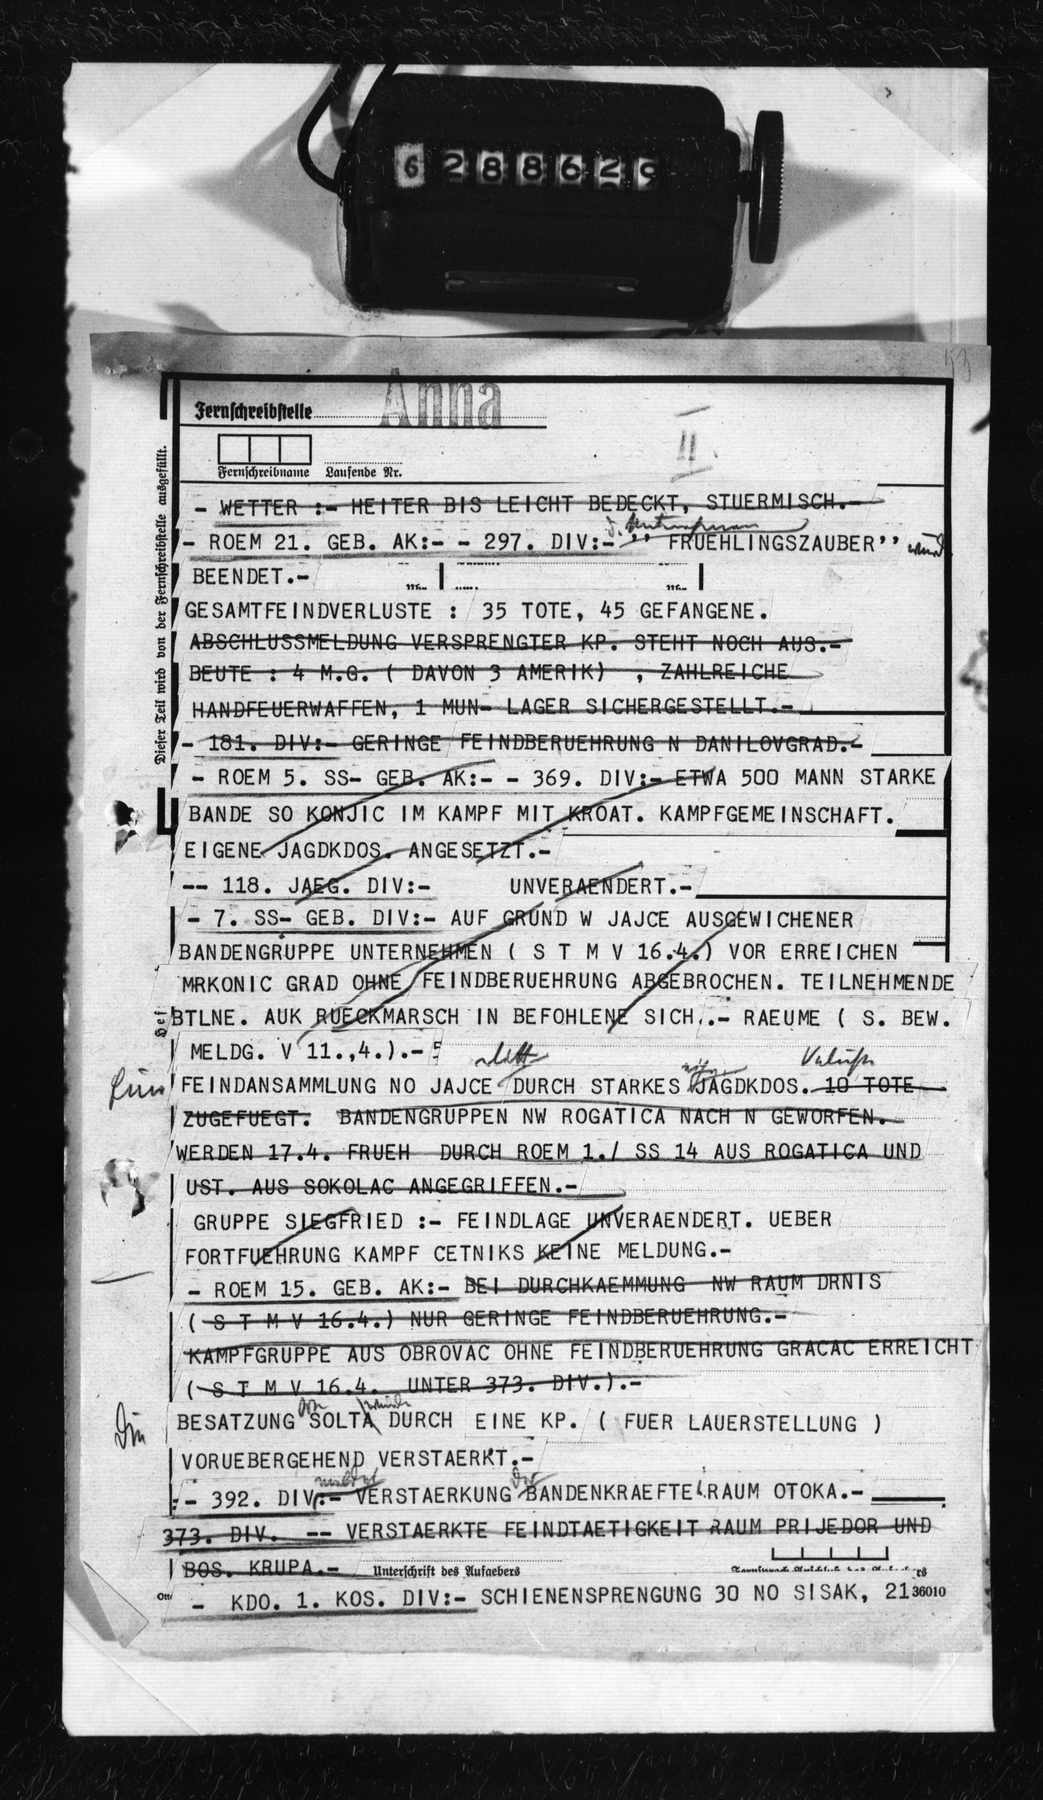 6 2 8 8 6 2 9
53
Fernschreibstelle Anna
II
Fernschreibname Laufende Nr.
Dieser Teil wird von der Fernschreibstelle ausgefüllt.
- WETTER :- HEITER BIS LEICHT BEDECKT, STUERMISCH.-
- ROEM 21. GEB. AK:- - 297. DIV:- '' FRUEHLINGSZAUBER'' wird
BEENDET.-
GESAMTFEINDVERLUSTE : 35 TOTE, 45 GEFANGENE.
ABSCHLUSSMELDUNG VERSPRENGTER KP. STEHT NOCH AUS.-
BEUTE : 4 M.G. ( DAVON 3 AMERIK) , ZAHLREICHE
HANDFEUERWAFFEN, 1 MUN- LAGER SICHERGESTELLT.-
- 181. DIV:- GERINGE FEINDBERUEHRUNG N DANILOVGRAD.-
- ROEM 5. SS- GEB. AK:- - 369. DIV:- ETWA 500 MANN STARKE
BANDE SO KONJIC IM KAMPF MIT KROAT. KAMPFGEMEINSCHAFT.
EIGENE JAGDKDOS. ANGESETZT.-
-- 118. JAEG. DIV:- UNVERAENDERT.-
- 7. SS- GEB. DIV:- AUF GRUND W JAJCE AUSGEWICHENER
BANDENGRUPPE UNTERNEHMEN ( S T M V 16.4.) VOR ERREICHEN
MRKONIC GRAD OHNE FEINDBERUEHRUNG ABGEBROCHEN. TEILNEHMENDE
BTLNE. AUK RUECKMARSCH IN BEFOHLENE SICH..- RAEUME ( S. BEW.
MELDG. V 11.,4.).-
FEINDANSAMMLUNG NO JAJCE DURCH STARKES JAGDKDOS. 10 TOTE
ZUGEFUEGT. BANDENGRUPPEN NW ROGATICA NACH N GEWORFEN.
WERDEN 17.4. FRUEH DURCH ROEM 1./ SS 14 AUS ROGATICA UND
UST. AUS SOKOLAC ANGEGRIFFEN.-
GRUPPE SIEGFRIED :- FEINDLAGE UNVERAENDERT. UEBER
FORTFUEHRUNG KAMPF CETNIKS KEINE MELDUNG.-
- ROEM 15. GEB. AK:- BEI DURCHKAEMMUNG NW RAUM DRNIS
( S T M V 16.4.) NUR GERINGE FEINDBERUEHRUNG.-
KAMPFGRUPPE AUS OBROVAC OHNE FEINDBERUEHRUNG GRACAC ERREICHT
( S T M V 16.4. UNTER 373. DIV.).-
BESATZUNG von SOLTA wurde DURCH EINE KP. ( FUER LAUERSTELLUNG )
VORUEBERGEHEND VERSTAERKT.-
- 392. DIV:- meldet VERSTAERKUNG der BANDENKRAEFTE RAUM OTOKA.-
373. DIV. -- VERSTAERKTE FEINDTAETIGKEIT RAUM PRIJEDOR UND
BOS. KRUPA.- Unterschrift des Aufgebers
- KDO. 1. KOS. DIV:- SCHIENENSPRENGUNG 30 NO SISAK, 21 36010